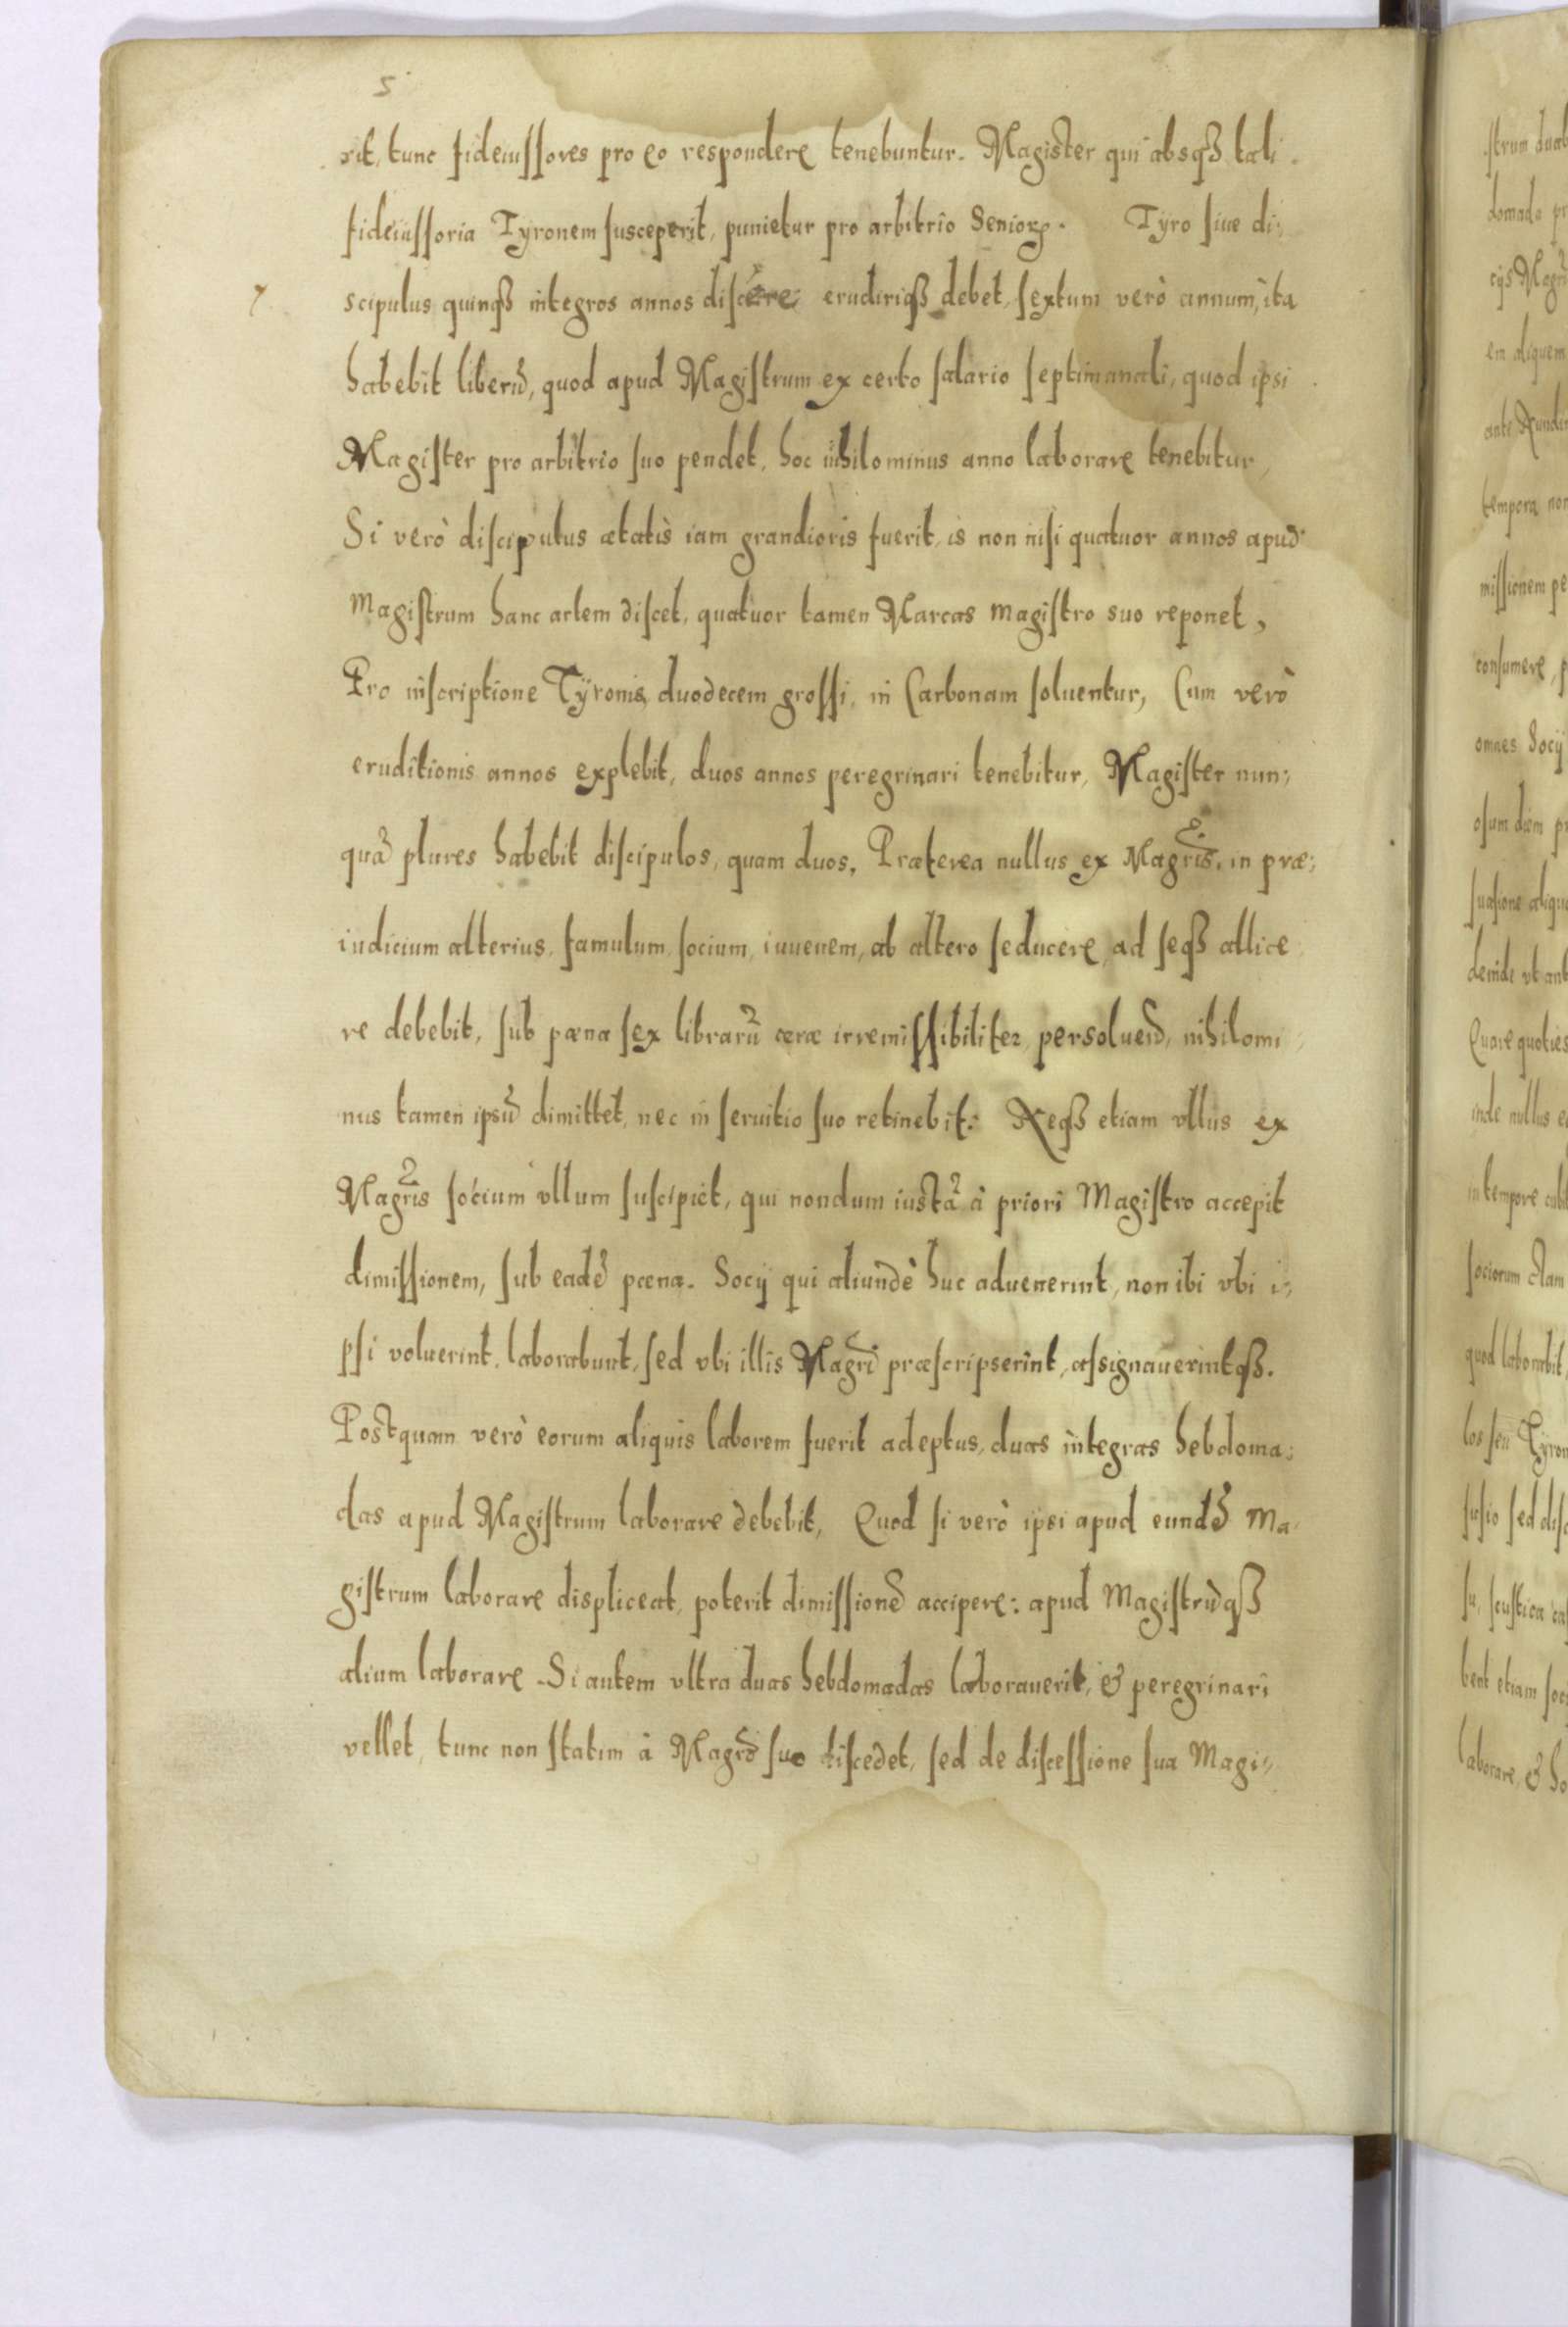 5
rit, tunc fideiuſſores pro eo respondere tenebuntur. Magister qui absqꝫ tali
fideiuſſoria Tyronem ſusceperit, punietur pro arbitrio Seniorꝝ. Tyro ſiue di⸗
7 scipulus quinqꝫ integros annos diſcere erudiriqꝫ debet, ſextum verò annum, ita
habebit liberũ, quod apud Magiſtrum ex certo ſalario ſeptimanali, quod ipsi
Magiſter pro arbitrio ſuo pendet, hoc nihilominus anno laborare tenebitur,
Si verò diſcipulus ætatis iam grandioris fuerit, is non niſi quatuor annos apud
Magiſtrum hanc artem diſcet, quatuor tamen Marcas Magiſtro suo reponet,
Pro inſcriptione Tÿronis duodecem groſſi, in Carbonam ſoluentur, Cum verò
eruditionis annos explebit, duos annos peregrinari tenebitur, Magiſter nun⸗
quã plures habebit diſcipulos, quam duos. Præterea nullus ex Magrĩs. in præ⸗
iudicium alterius, famulum, ſocium, iuuenem, ab altero ſeducere, ad ſeqꝫ allice
re debebit, ſub pæna ſex librarũ ceræ irremiſſibiliter persoluẽd, nihilomi⸗
nus tamen ipsũ dimittet, nec in ſeruitio ſuo retinebit: Neqꝫ etiam vllus ex
Magrĩs ſocium vllum ſuſcipiet, qui nondum iustã à priori Magiſtro accepit
dimiſſionem, ſub eadẽ pœna. Socij qui aliundè huc aduenerint, non ibi vbi i⸗
pſi voluerint, laborabunt, ſed vbi illis Magrĩ præſcripserint, aſsignauerintqꝫ.
Postquam verò eorum aliquis laborem fuerit adeptus, duas integras hebdoma⸗
das apud Magiſtrum laborare debebit, Quod ſi verò ipsi apud eundẽ Ma⸗
giſtrum laborare displiceat, poterit dimiſſionẽ accipere: apud Magiſtrũqꝫ
alium laborare. Si autem vltra duas hebdomadas laborauerit, & peregrinari
vellet, tunc non ſtatim à Magrõ ſuo diſcedet, ſed de diſceſſione ſua Magi⸗